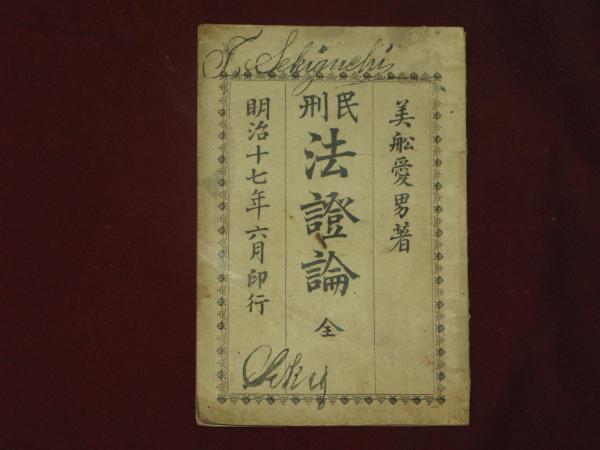 F. Sekiguchi
美舩愛男著
民刑
法證論 全
明治十七年六月印行